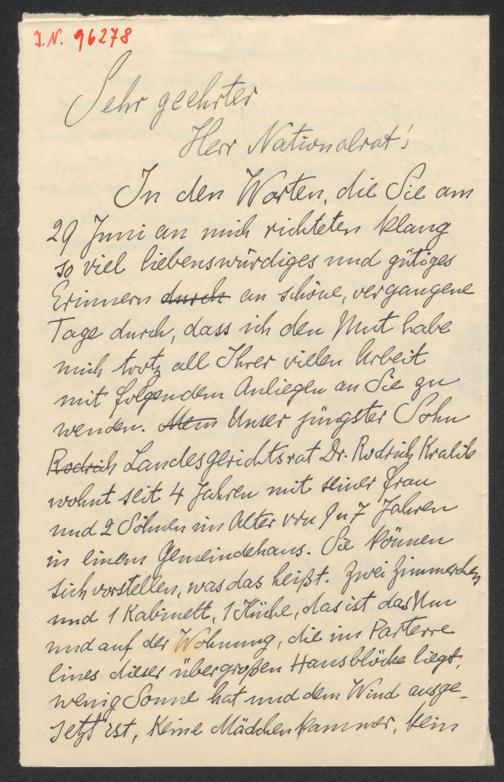 I.N. 96278
Sehr geehrter
Herr Nationalrat!
In den Worten, die Sie am
29 Juni an mich richteten klang
so viel liebenswürdiges und gütiges
Erinnern durch an schöne, vergangene
Tage durch, dass ich den Mut habe
mich trotz all Ihrer vielen Arbeit
mit folgendem Anliegen an Sie zu
wenden. Mein Unser jüngster Sohn
Rodrich Landesgerichtsrat Dr. Rodrich Kralik
wohnt seit 4 Jahren mit seiner Frau
und 2 Söhnen im Alter von 9 u 7 Jahren
in einem Gemeindehaus. Sie können
sich vorstellen, was das heißt. Zwei Zimmerchen
und 1 Kabinett, 1 Küche, das ist das Um
und auf der Wohnung, die im Parterre
eines dieser übergroßen Hausblöcke liegt,
wenig Sonne hat und dem Wind ausge-
setzt ist, keine Mädchenkammer, kein